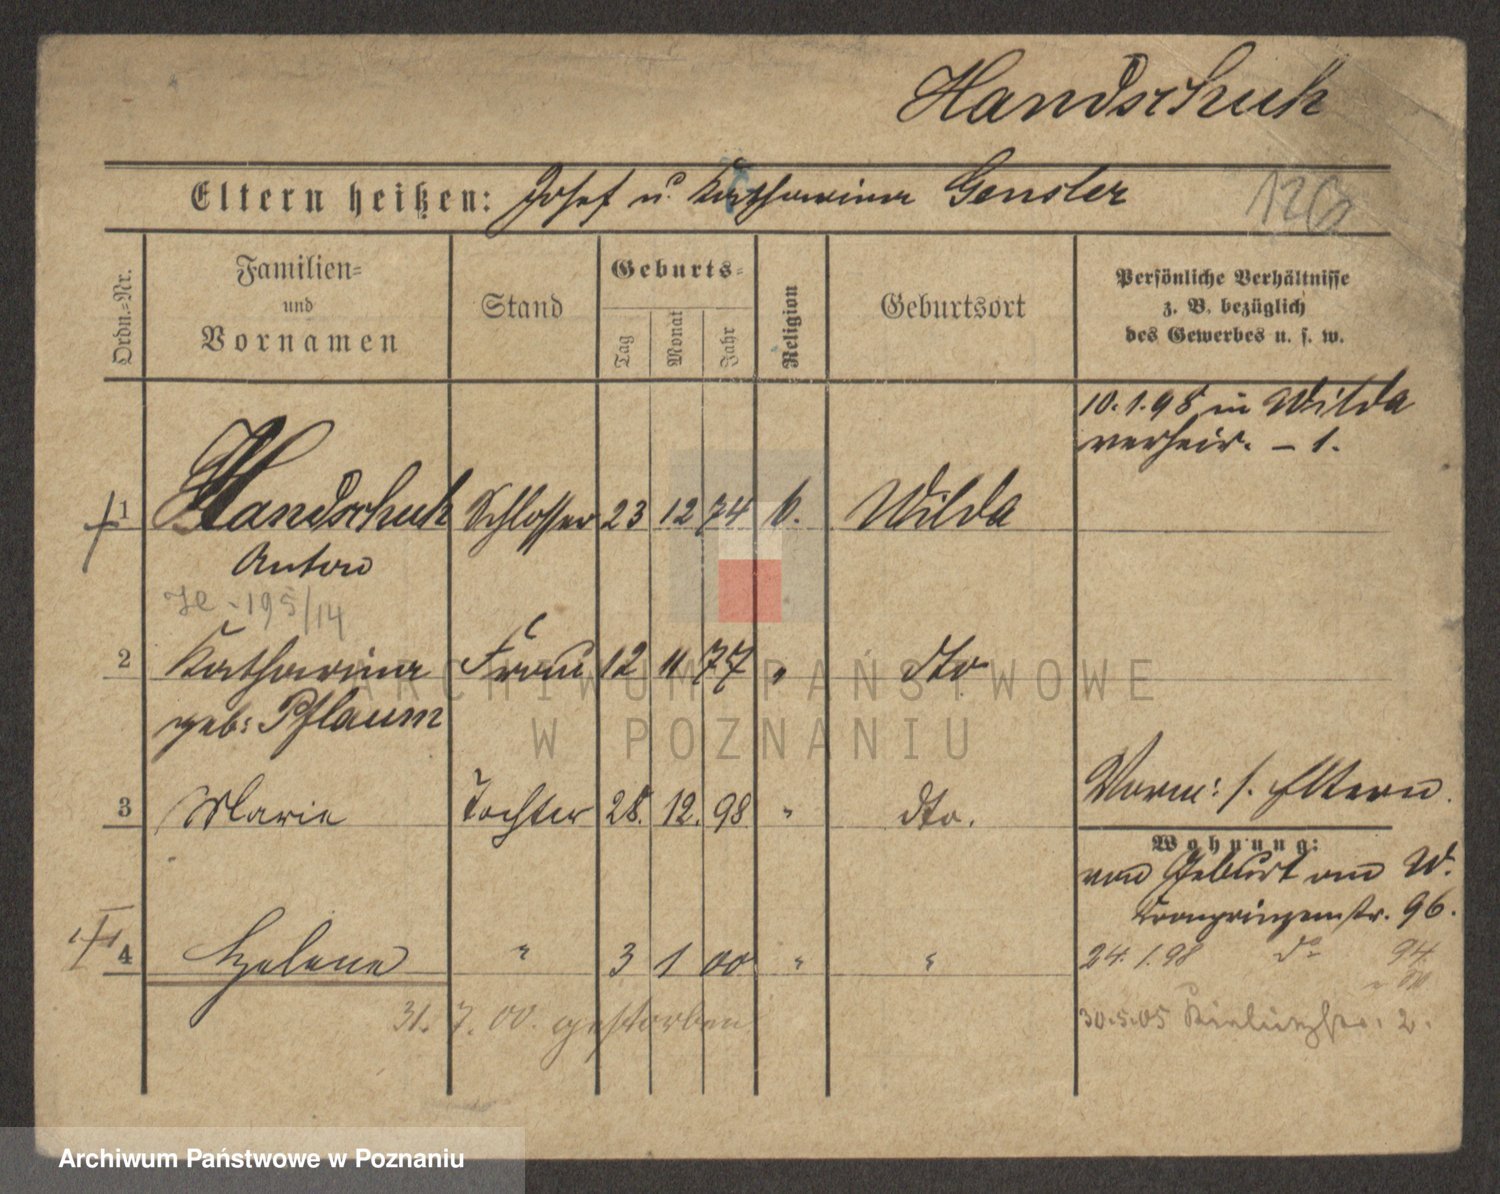 Handschuh
Eltern heißen: Josef u. Katharina Gensler
126
Ordn.-Nr.
Familien-
und
Vornamen
Stand
Geburts-
Tag
Monat
Jahr
Religion
Geburtsort
Persönliche Verhältnisse
z. B. bezüglich
des Gewerbes u. s. w.
10.1.98 in Wilda
verheir. - 1.
1 Handschuh Schlosser 23 12 74 k. Wilda
Anton
195/14
2 Katharina Frau 12 11 77 " dto
geb: Pflaum
3 Marie Tochter 28. 12. 98 " dto.
Vorm: s. Eltern.
Wohnung:
von Geburt an W.
Kronprinzenstr. 96.
4 Helene " 3 1 00 " "
24.1.98 do 94.
31. 7. 00. gestorben
30.5.05 2.
ARCHIWUM PAŃSTWOWE
W POZNANIU
Archiwum Państwowe w Poznaniu